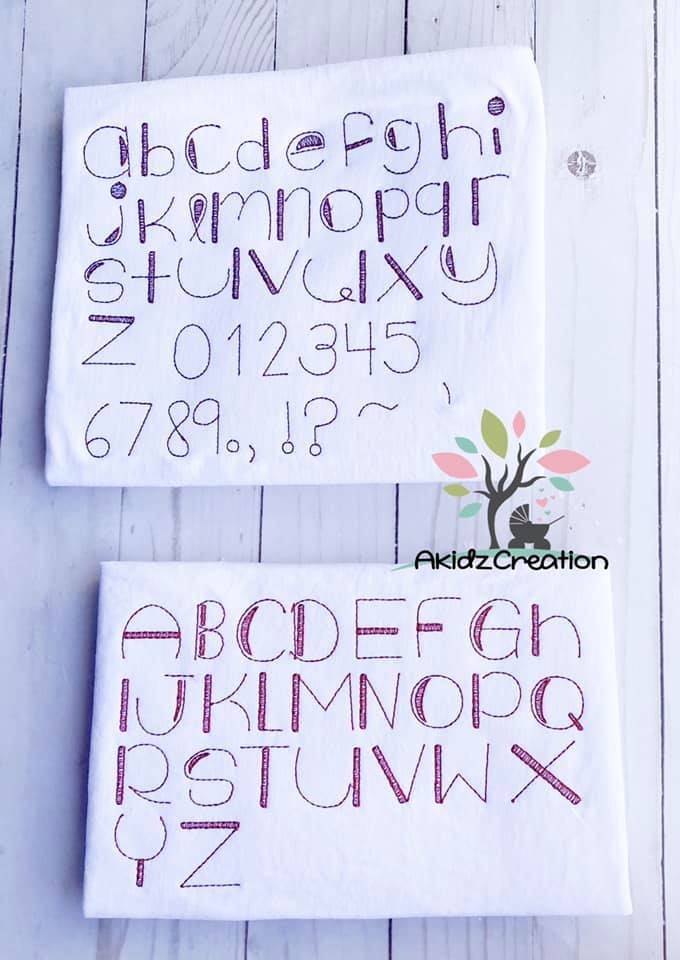 abcdefghi
jklmnopqr
stuvwxy
z 012345
6789.,!?~'
AkidzCreation
ABCDEFGh
IJKLMNOPQ
RSTUVWX
YZ